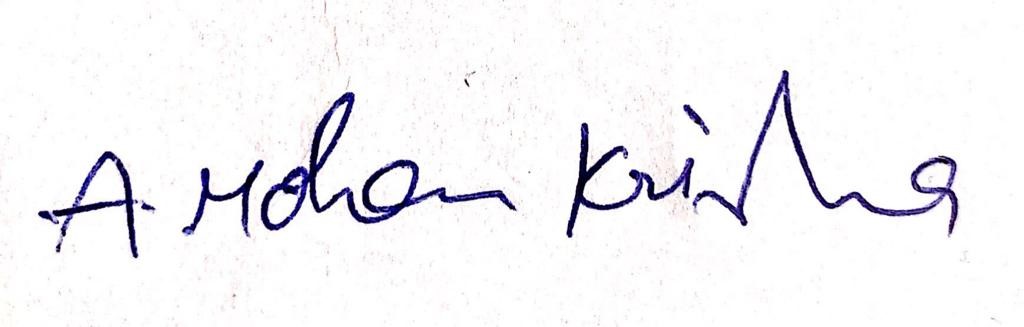 A. Mohan Krishna